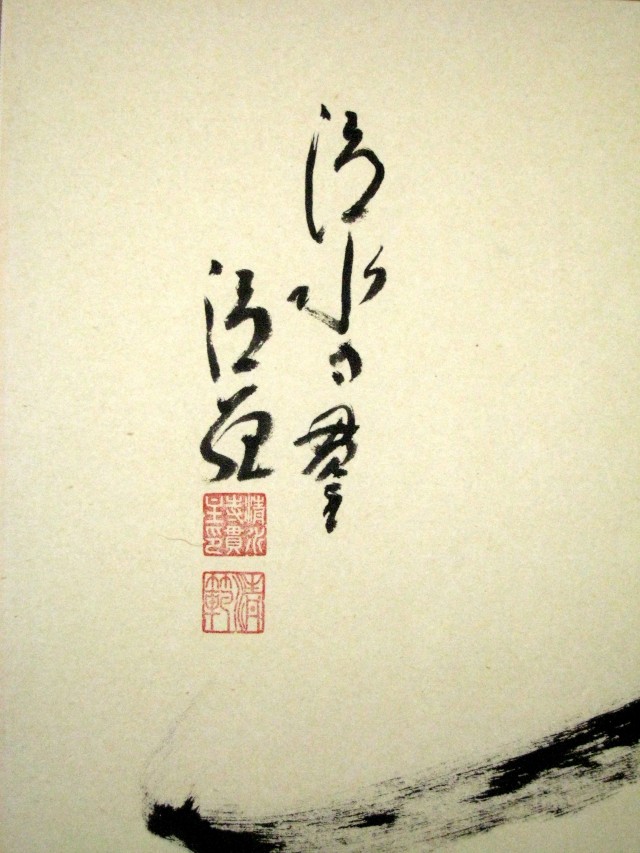 清水寺貫主
清範
清水
寺貫
主印
清
範